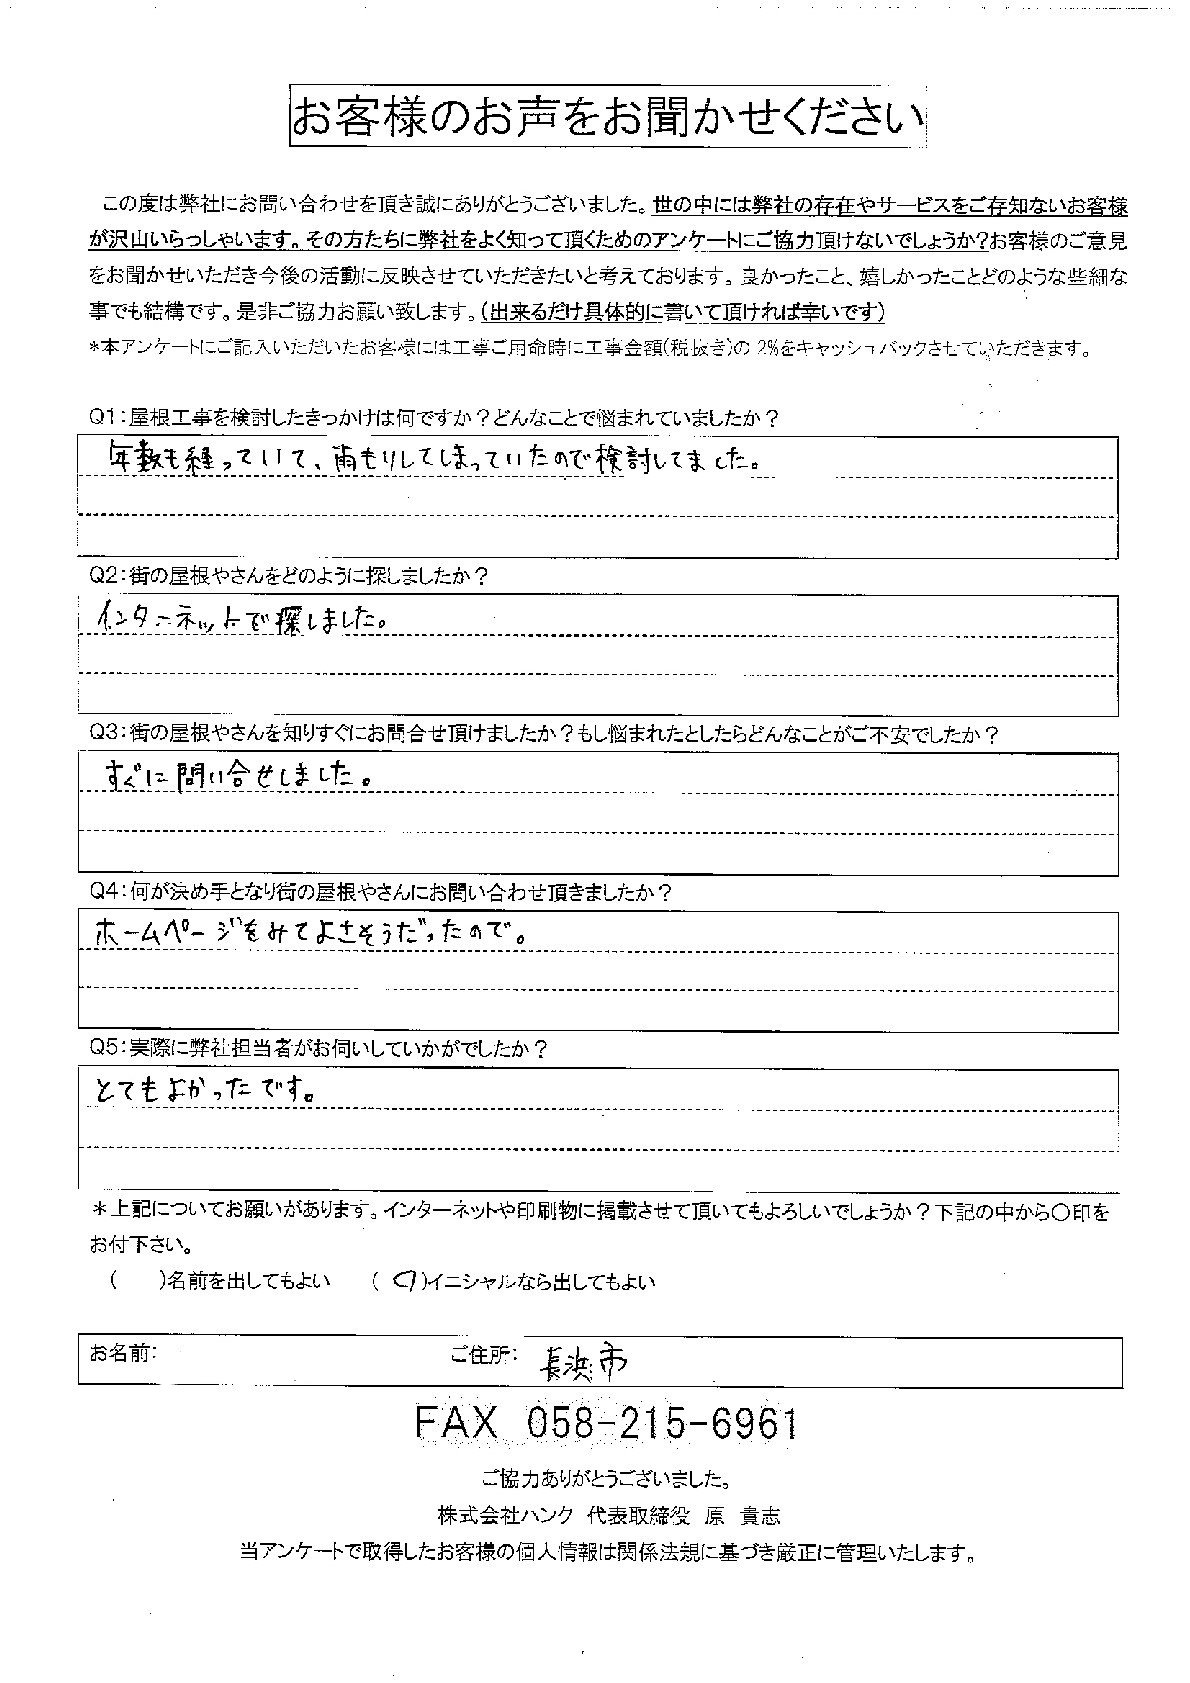 お客様のお声をお聞かせください
この度は弊社にお問い合わせを頂き誠にありがとうございました。世の中には弊社の存在やサービスをご存知ないお客様
が沢山いらっしゃいます。その方たちに弊社をよく知って頂くためのアンケートにご協力頂けないでしょうか?お客様のご意見
をお聞かせいただき今後の活動に反映させていただきたいと考えております。良かったこと、嬉しかったことどのような些細な
事でも結構です。是非ご協力お願い致します。(出来るだけ具体的に書いて頂ければ幸いです)
*本アンケートにご記入いただいたお客様には工事ご用命時に工事金額(税抜き)の 2%をキャッシュバックさせていただきます。
Q1:屋根工事を検討したきっかけは何ですか?どんなことで悩まれていましたか?
年数も経っていて、雨もりしてしまっていたので検討してました。
Q2:街の屋根やさんをどのように探しましたか?
インターネットで探しました。
Q3:街の屋根やさんを知りすぐにお問合せ頂けましたか?もし悩まれたとしたらどんなことがご不安でしたか?
すぐに問い合せしました。
Q4:何が決め手となり街の屋根やさんにお問い合わせ頂きましたか?
ホームページをみてよさそうだったので。
Q5:実際に弊社担当者がお伺いしていかがでしたか?
とてもよかったです。
*上記についてお願いがあります。インターネットや印刷物に掲載させて頂いてもよろしいでしょうか?下記の中から〇印を
お付下さい。
( )名前を出してもよい (〇)イニシャルなら出してもよい
お名前: ご住所: 長浜市
FAX 058-215-6961
ご協力ありがとうございました。
株式会社ハンク 代表取締役 原 貴志
当アンケートで取得したお客様の個人情報は関係法規に基づき厳正に管理いたします。